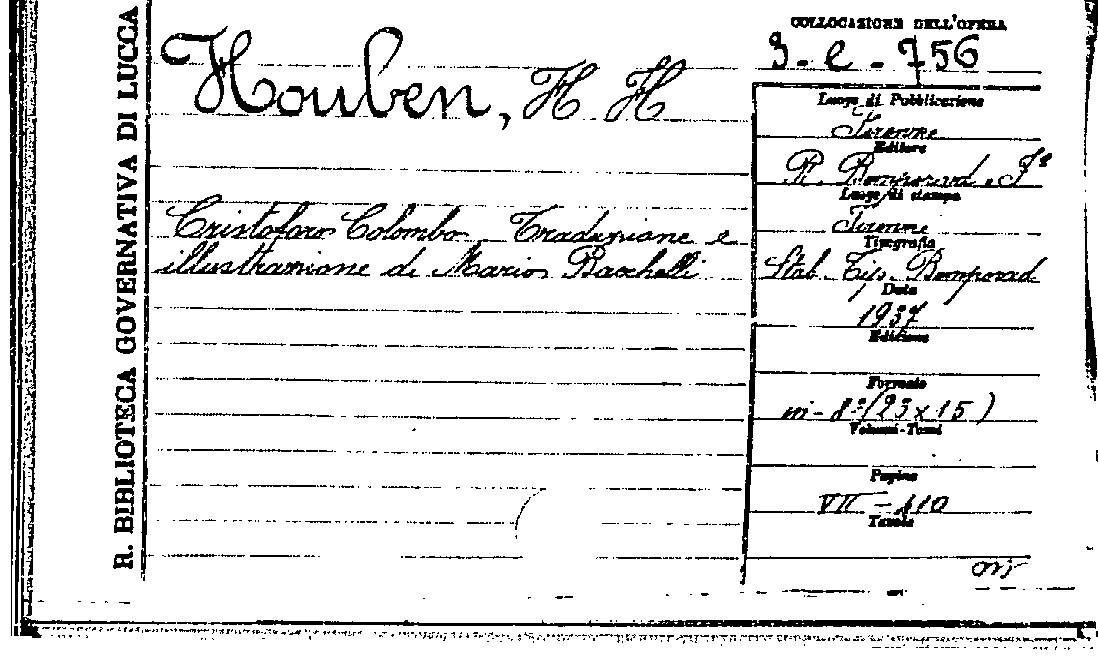 R. BIBLIOTECA GOVERNATIVA DI LUCCA
Houben, H H
Cristoforo Colombo Traduzione e
illustrazione di Mario Bacchelli
COLLOCAZIONE DELL'OPERA
3-e-756
Luogo di Pubblicazione
Firenze
Editore
R. Bemporad e F°
Luogo di stampa
Firenze
Tipografia
Stab. Tip. Bemporad
Data
1937
Edizione
Formato
in-8°(23x15)
Volumi-Tomi
Pagine
VII-410
Tavole